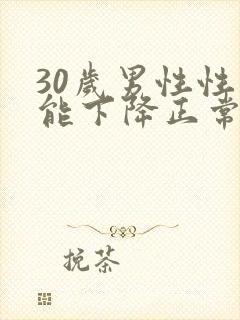 30歲男性性
能下降正常
挽茶